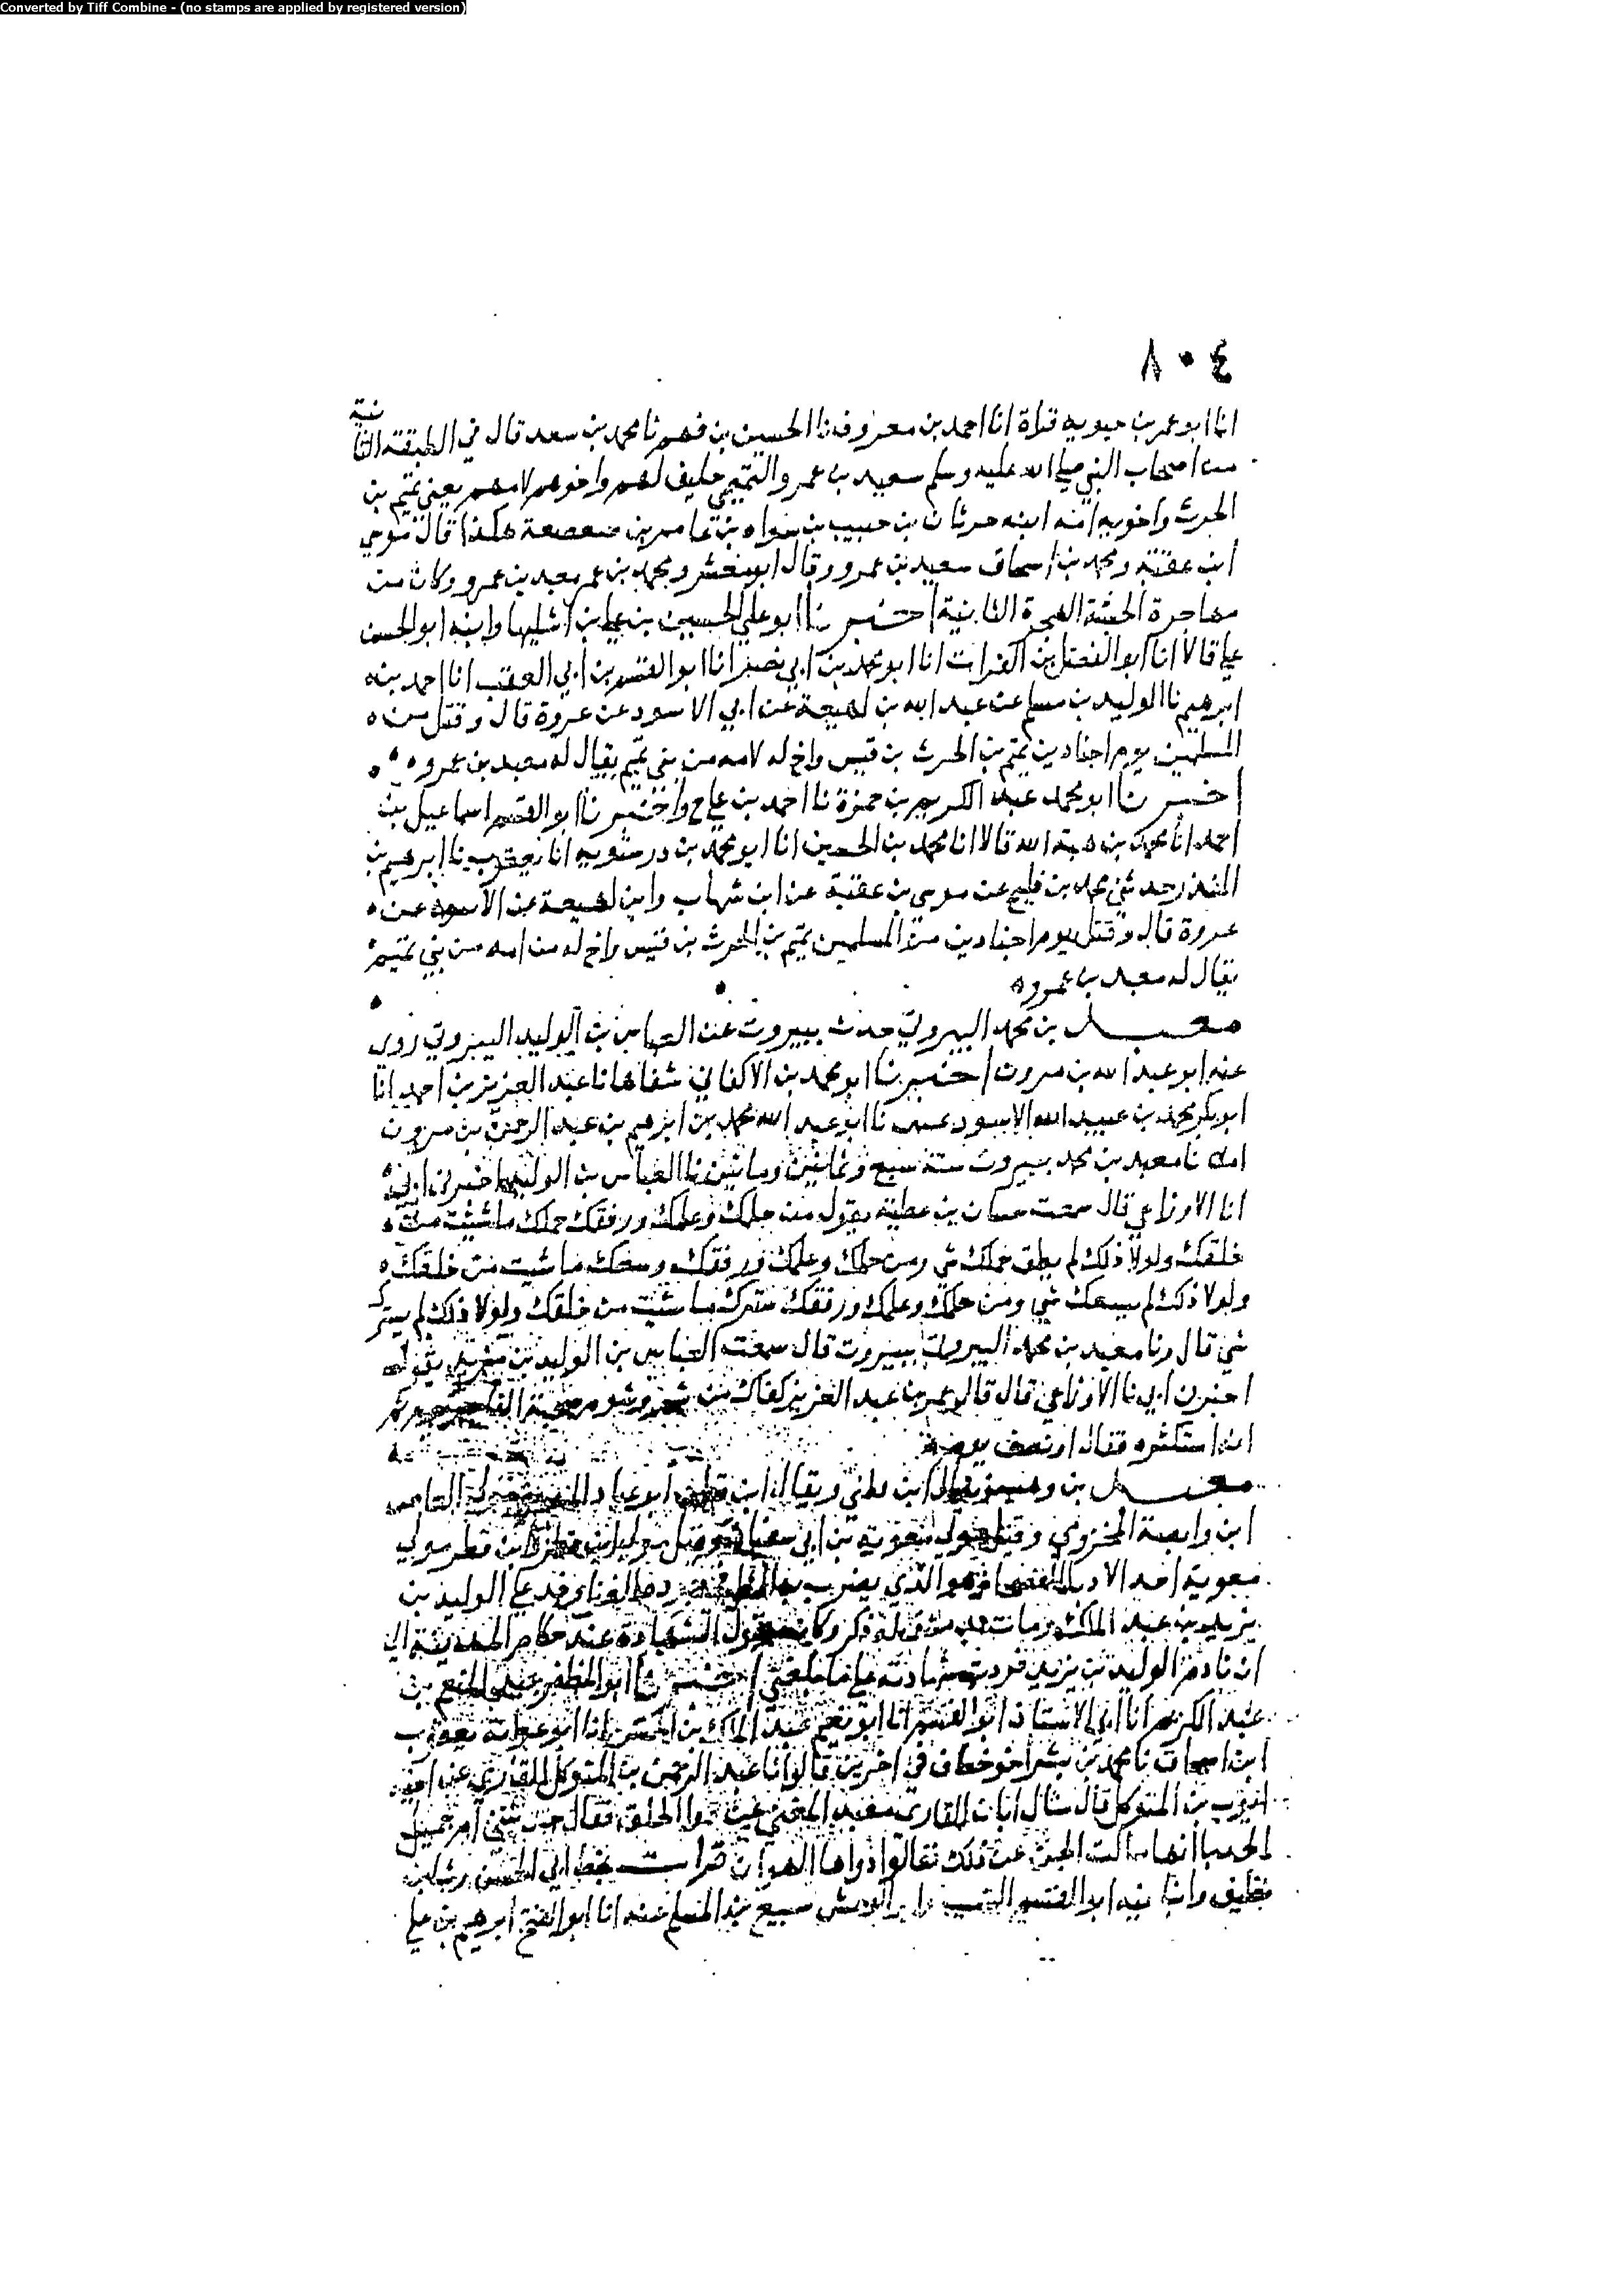 Converted by Tiff Combine - (no stamps are applied by registered version)
٤٠٨
انا ابو عمر بن حيويه قراة انا احمد بن معروف نا الحسين بن فهم نا محمد بن سعد قال في الطبقة الثانية
من اصحاب النبي صلى الله عليه وسلم سعيد بن عمرو التميمي حليف لهم واخوهم لامهم يعني تميم بن
الحرث واخويه امه ابنه حرثان بن حبيب بن سواه بن عامر بن صعصعة هكذا قال موسى
ابن عقبة ومحمد بن اسحاق سعيد بن عمرو وقال ابو معشر ومحمد بن عمر معبد بن عمرو وكان من
مهاجرة الحبشة الهجرة الثانية اخبرنا ابو علي الحسين بن علي بن اشليها وابنه ابو الحسن
علي قالا انا ابو الفضل بن الفرات انا ابو محمد بن ابي نصر انا ابو القسم بن ابي العقب انا احمد بن
ابرهيم نا الوليد بن مسلم عن عبد الله بن لهيعة عن ابي الاسود عن عروة قال وقتل من ه
المسلمين يوم اجنادين تميم بن الحرث بن قيس واخ له لامه من بني تميم يقال له معبد بن عمرو ه
اخبرنا ابو محمد عبد الكريم بن حمزة نا احمد بن علي ح واخبرنا ابو القسم اسماعيل بن
احمد انا محمد بن هبة الله قالا انا محمد بن الحسين انا ابو محمد بن درستويه انا يعقوب نا ابرهيم بن
المنذر حدثني محمد بن فليح عن موسى بن عقبة عن ابن شهاب وابن لهيعة عن الاسود عن ه
عروة قال وقتل يوم اجنادين من المسلمين تميم بن الحرث بن قيس واخ له من امه من بني تميم
يقال له معبد بن عمرو ه
معبد بن محمد البيروتي حدث ببيروت عن العباس بن الوليد البيروتي روى
عنه ابو عبد الله بن مروان اخبرنا ابو محمد بن الاكفاني شفاها نا عبد العزيز بن احمد انا
ابو بكر محمد بن عبيد الله الاسود نا ابو عبد الله محمد بن ابرهيم بن عبد الرحمن بن مروان
نا معبد بن محمد ببيروت سنة سبع وثمانين وماتين نا العباس بن الوليد اخبرني ابي
انا الاوزاعي قال سمعت حسان بن عطية يقول من حلمك وعلمك ورفقك حملك ما شئت من ه
خلقك ولولا ذلك لم يطق حملك شي ومن حلمك وعلمك ورفقك وسعك ما شيت من خلقك ه
ولولا ذلك لم يسعك شي ومن حلمك وعلمك ورفقك سترك ما شئت من خلقك ولولا ذلك لم يسترك
شي قال ونا معبد بن محمد البيروتي ببيروت قال سمعت العباس بن الوليد بن مزيد يقول
اخبرني ابي نا الاوزاعي قال قال عمر بن عبد العزيز كفاك من
استكثره فقال او نصف يوم ه
معبد بن وهب ويقال ابن قطني ويقال ابن قطن ابو عباد العاص
ابن وابصة المخزومي وقيل مولى معوية بن ابي سفيان وقيل ابن قطر مولى
معوية احد الوليد بن
يزيد بن عبد الملك ومات وكان مقبول الشهادة عند حكام المدينة الى
ان نادم الوليد بن يزيد فردت شهادته على ما بلغني اخبرنا ابو المظفر عبد المنعم بن
عبد الكريم انا ابي الاستاذ ابو القسم انا ابو نعيم عبد الملك بن الحسن انا ابو عوانة يعقوب
ابن اسحاق نا محمد بن بشر اخو خطاب في اخرين قالوا انا عبد الرحمن بن المتوكل القاري عن
ايوب بن المتوكل قال سال ابان القارى معبد المغني عن دوا الحلق فقال حدثتني ام جميل
انها سالت الجن عن ذلك فقالوا دواها الهوان قرات بخط ابي الحسن رشا بن
نظيف وانبا نيه ابو القسم سبيع بن المسلم عنه انا ابو الفتح ابرهيم بن علي